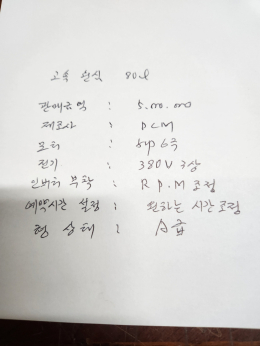 고속 믹서 80ℓ
판매금액 : 5.000.000
제조사 : DCM
모터 : 5Hp 6극
전기 : 380V 3상
인버터 부착 : R P.M 조정
예약시간 설정 : 원하는 시간 조정
현 상태 : A급